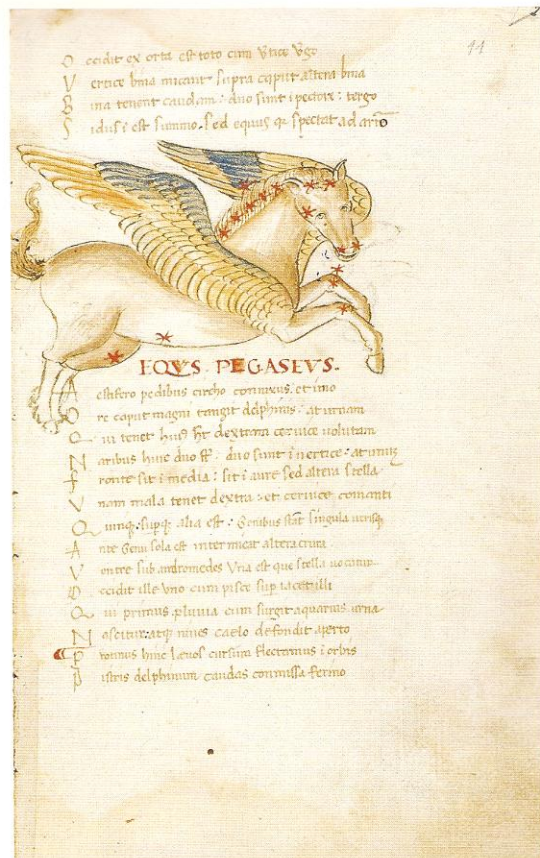 44
O ccidit ex orta est toto cum Vrtice Vgo
V ertice bina micant supra caput altera bina
B ina tenent caudam : duo sunt i pectore : tergo
S idus i est summo. sed equus qr spectat ad
EQVS PEGASEVS.
A estifero pedibus circho connixus. et imo
O re caput magni tangit delphinus. at urnam
Q ui tenet huius dextram ceruice volutam
N aribus huic duo ff. duo sunt i uertice. at unus
F ronte sit i media : sit i aure sed altera stella
V nam mala tenet dextra : et ceruice comanti
Q uinque supque alia est : Genibus stat singula
A nte Genu sola est inter micat altera crura.
V entre sub andromedes Vna est que stella uocatur.
O ccidit ille Vno cum pisce sup iacet illi
Q ui primus pluvia cum surgit aquarius urna
N ascitur. atque nives caelo defondit aperto
P rotinus hinc laevos cursum flectamus i orbis
P istris delphinum caudas commissa ferino